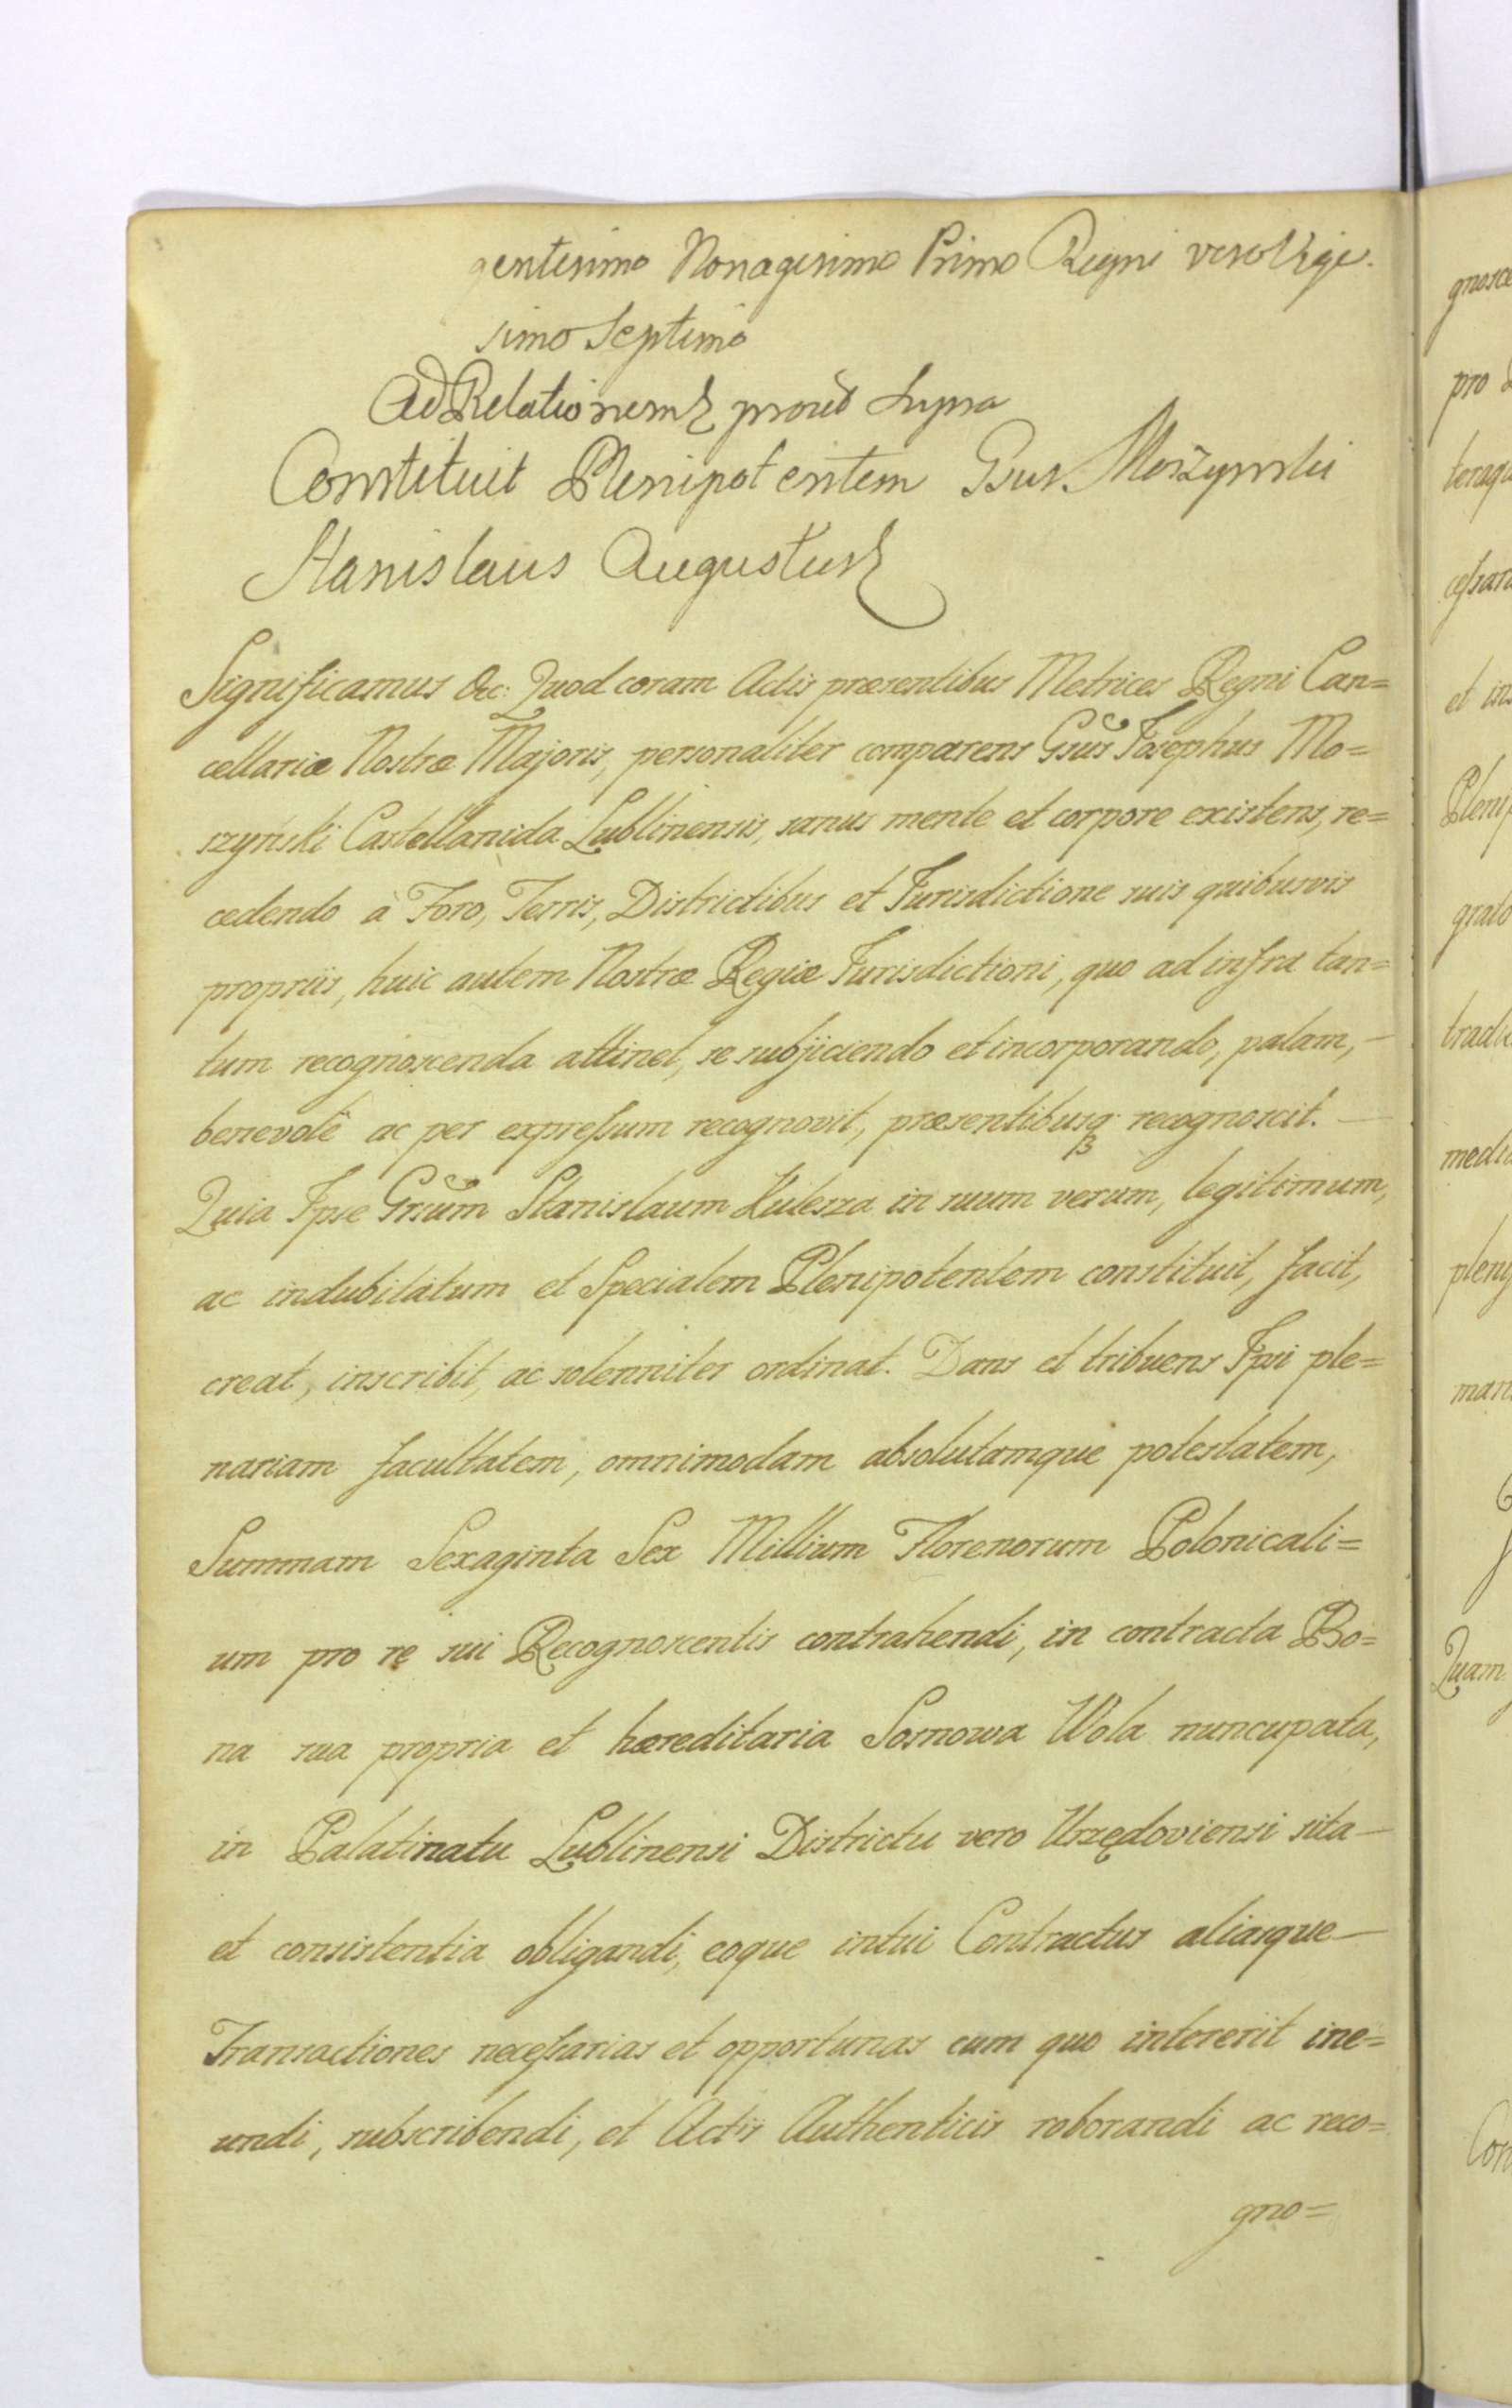 gentesimo Nonagesimo Primo Regni vero Vige-
simo Septimo
Ad Relationem prout supra
Constituit Plenipotentem Gsus Moszynski
Stanislaus Augustus
Significamus &c: Quod coram Actis præsentibus Metrices Regni Can=
cellariæ Nostræ Majoris, personaliter comparens Gsus Josephus Mo=
szynski Castellanida Lublinensis, sanus mente et corpore existens, re=
cedendo à Foro, Terris, Districtibus et Jurisdictione suis quibusvis
propriis, huic autem Nostræ Regiæ Jurisdictioni, quo ad infra tan=
tum recognoscenda attinet, se subjiciendo et incorporando, palam, -
benevolè ac per expreſsum recognovit, præsentibusq recognoscit. -
Quia Ipse Gsum Stanislaum Kulesza in suum verum, legitimum,
ac indubitatum et Specialem Plenipotentem constituit, facit,
creat, inscribit, ac solenniter ordinat. Dans et tribuens Ipsi ple=
nariam facultatem, omnimodam absolutamque potestatem,
Summam Sexaginta Sex Millium Florenorum Polonicali=
um pro re sui Recognoscentis contrahendi, in contracta Bo=
na sua propria et hæreditaria Sosnowa Wola nuncupata,
in Palatinatu Lublinensi Districtu vero Urzędoviensi sita -
et consistentia obligandi, eoque intui Contractus aliasque -
Transactiones neceſsarias et opportunas cum quo intererit ine=
undi, subscribendi, et Actis Authenticis roborandi ac reco=
gno=
gnosce
pro
teraq
ceſsari
et ins
Plenip
grato
trad
medi
pleni
man
Quam
Con